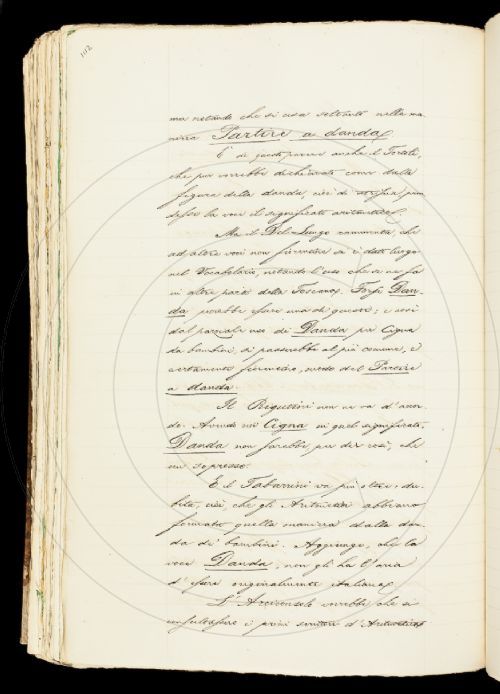 1112
ma notando che si usa soltanto nella ma
niera Partire a danda.
E di questo parere anche il Tortoli,
che pur vorrebbe dichiarato come dalla
figura della danda, cioè di striscia, pren
desse la voce il significato aritmetico.
Ma il Del-Lungo rammenta, che
ad altre voci non fiorentine si è dato luogo
nel Vocabolario, notando l'uso che se ne fa
in altre parti della Toscana. Forse Dan-
da potrebbe essere una di queste; e così
dal parziale uso di Danda per Cigna
da bambini, si passerebbe al più comune, e
certamente fiorentino, modo del Partire
a danda.
Il Rigutini non ne va d'accor
do. Avendo noi Cigna in quel significato,
Danda non sarebbe, per dir così, che
un soprosso.
E il Tabarrini va più oltre: du-
bita, cioè, che gli Aritmetici abbiano
formato quella maniera dalla dan-
da de' bambini. Aggiunge, che la
voce Danda, non gli ha l'aria
d'essere originalmente italiana.
L'Arciconsolo vorrebbe che si
consultassero i primi scrittori d'Aritmetica